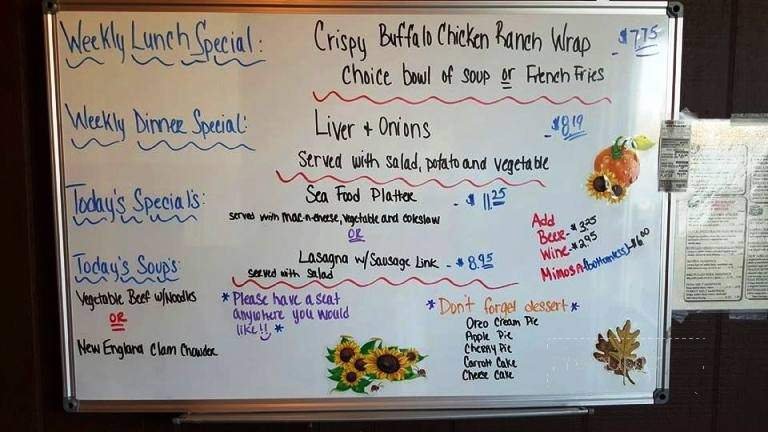 Weekly Lunch Special: Crispy Buffalo Chicken Ranch Wrap - $7.75
Choice bowl of soup or French Fries
Weekly Dinner Special: Liver + Onions - $8.19
Served with salad, potato and vegetable
Today's Special's: Sea Food Platter - $11.25
served with mac-n-cheese, vegetable and coleslaw
OR
Lasagna w/ Sausage Link - $8.95
served with salad
Add
Beer - $3.25
Wine - $2.95
Mimosa (bottomless) - $6.00
Today's Soup's:
Vegetable Beef w/Noodles
OR
New England Clam Chowder
*Please have a seat
anywhere you would
like!! *
*Don't forget dessert*
Oreo Cream Pie
Apple Pie
Cherry Pie
Carrott Cake
Cheese Cake